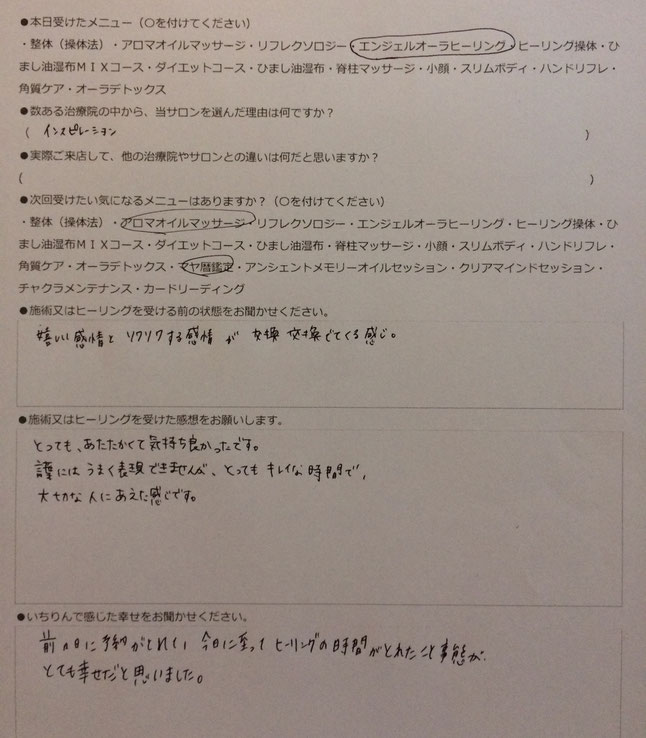 ●本日受けたメニュー（〇を付けてください）
・整体（操体法）・アロマオイルマッサージ・リフレクソロジー・エンジェルオーラヒーリング・ヒーリング操体・ひ
まし油湿布ＭＩＸコース・ダイエットコース・ひまし油湿布・脊柱マッサージ・小顔・スリムボディ・ハンドリフレ・
角質ケア・オーラデトックス
●数ある治療院の中から、当サロンを選んだ理由は何ですか？
（ インスピレーション ）
●実際ご来店して、他の治療院やサロンとの違いは何だと思いますか？
（ ）
●次回受けたい気になるメニューはありますか？（〇を付けてください）
・整体（操体法）・アロマオイルマッサージ・リフレクソロジー・エンジェルオーラヒーリング・ヒーリング操体・ひ
まし油湿布ＭＩＸコース・ダイエットコース・ひまし油湿布・脊柱マッサージ・小顔・スリムボディ・ハンドリフレ・
角質ケア・オーラデトックス・マヤ暦鑑定・アンシェントメモリーオイルセッション・クリアマインドセッション・
チャクラメンテナンス・カードリーディング
●施術又はヒーリングを受ける前の状態をお聞かせください。
嬉しい感情とワクワクする感情が 交換でてくる感じ。
●施術又はヒーリングを受けた感想をお願いします。
とっても、あたたかくて気持ち良かったです。
にはうまく表現できませんが、とってもキレイな時間で、
大切な人にあえた感じです。
●いちりんで感じた幸せをお聞かせください。
前の日に予約がとれて、今日に至ってヒーリングの時間がとれたこと事態が、
とても幸せだと思いました。